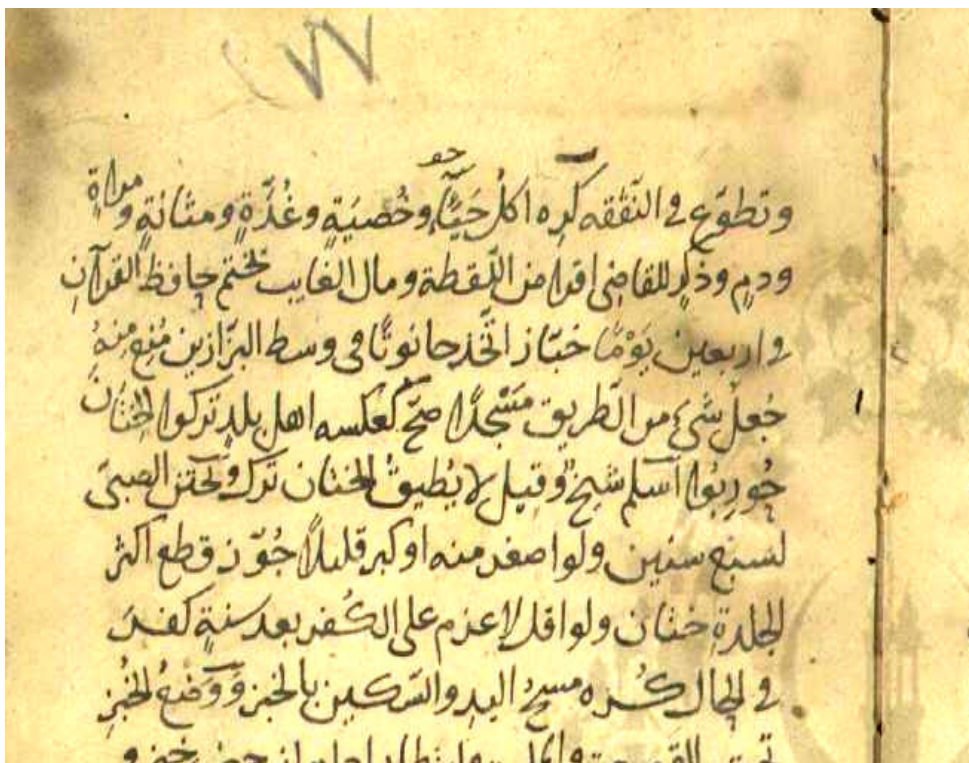 ٧٧
وتطوّع في التفقه كره اكل حَيًّا وخُصيَةٍ وغُدَّةٍ ومثانةٍ ومرارةٍ
ودمٍ وذكرٍ للقاضى اقراض اللّقطة ومال الغايب يختم حافظ القرآن
في اربعين يَوْمًا خبّاز اتّخذ حانوتًا فى وسط البزّازين مُنِعَ مِنهُ
جُعل شىء من الطّريق مَسْجدًا صحّ كعكسه اهل بلدٍ تركوا الختان
حُورِبُوا اسلم شيخٌ وقيل لا يُطيقُ الختان ترك ويختن الصبىّ
لسَبْع سنين ولو اصغر منه او كبر قليلًا جُوّز قطع اكثر
الجلدةِ ختان ولو اقل لا عزم على الكُفر بعد سنةٍ كفَر
في الحال كُره مسحُ اليدِ والسّكين بالخبز وَوَضعُ الخُبز
تحت القصعة